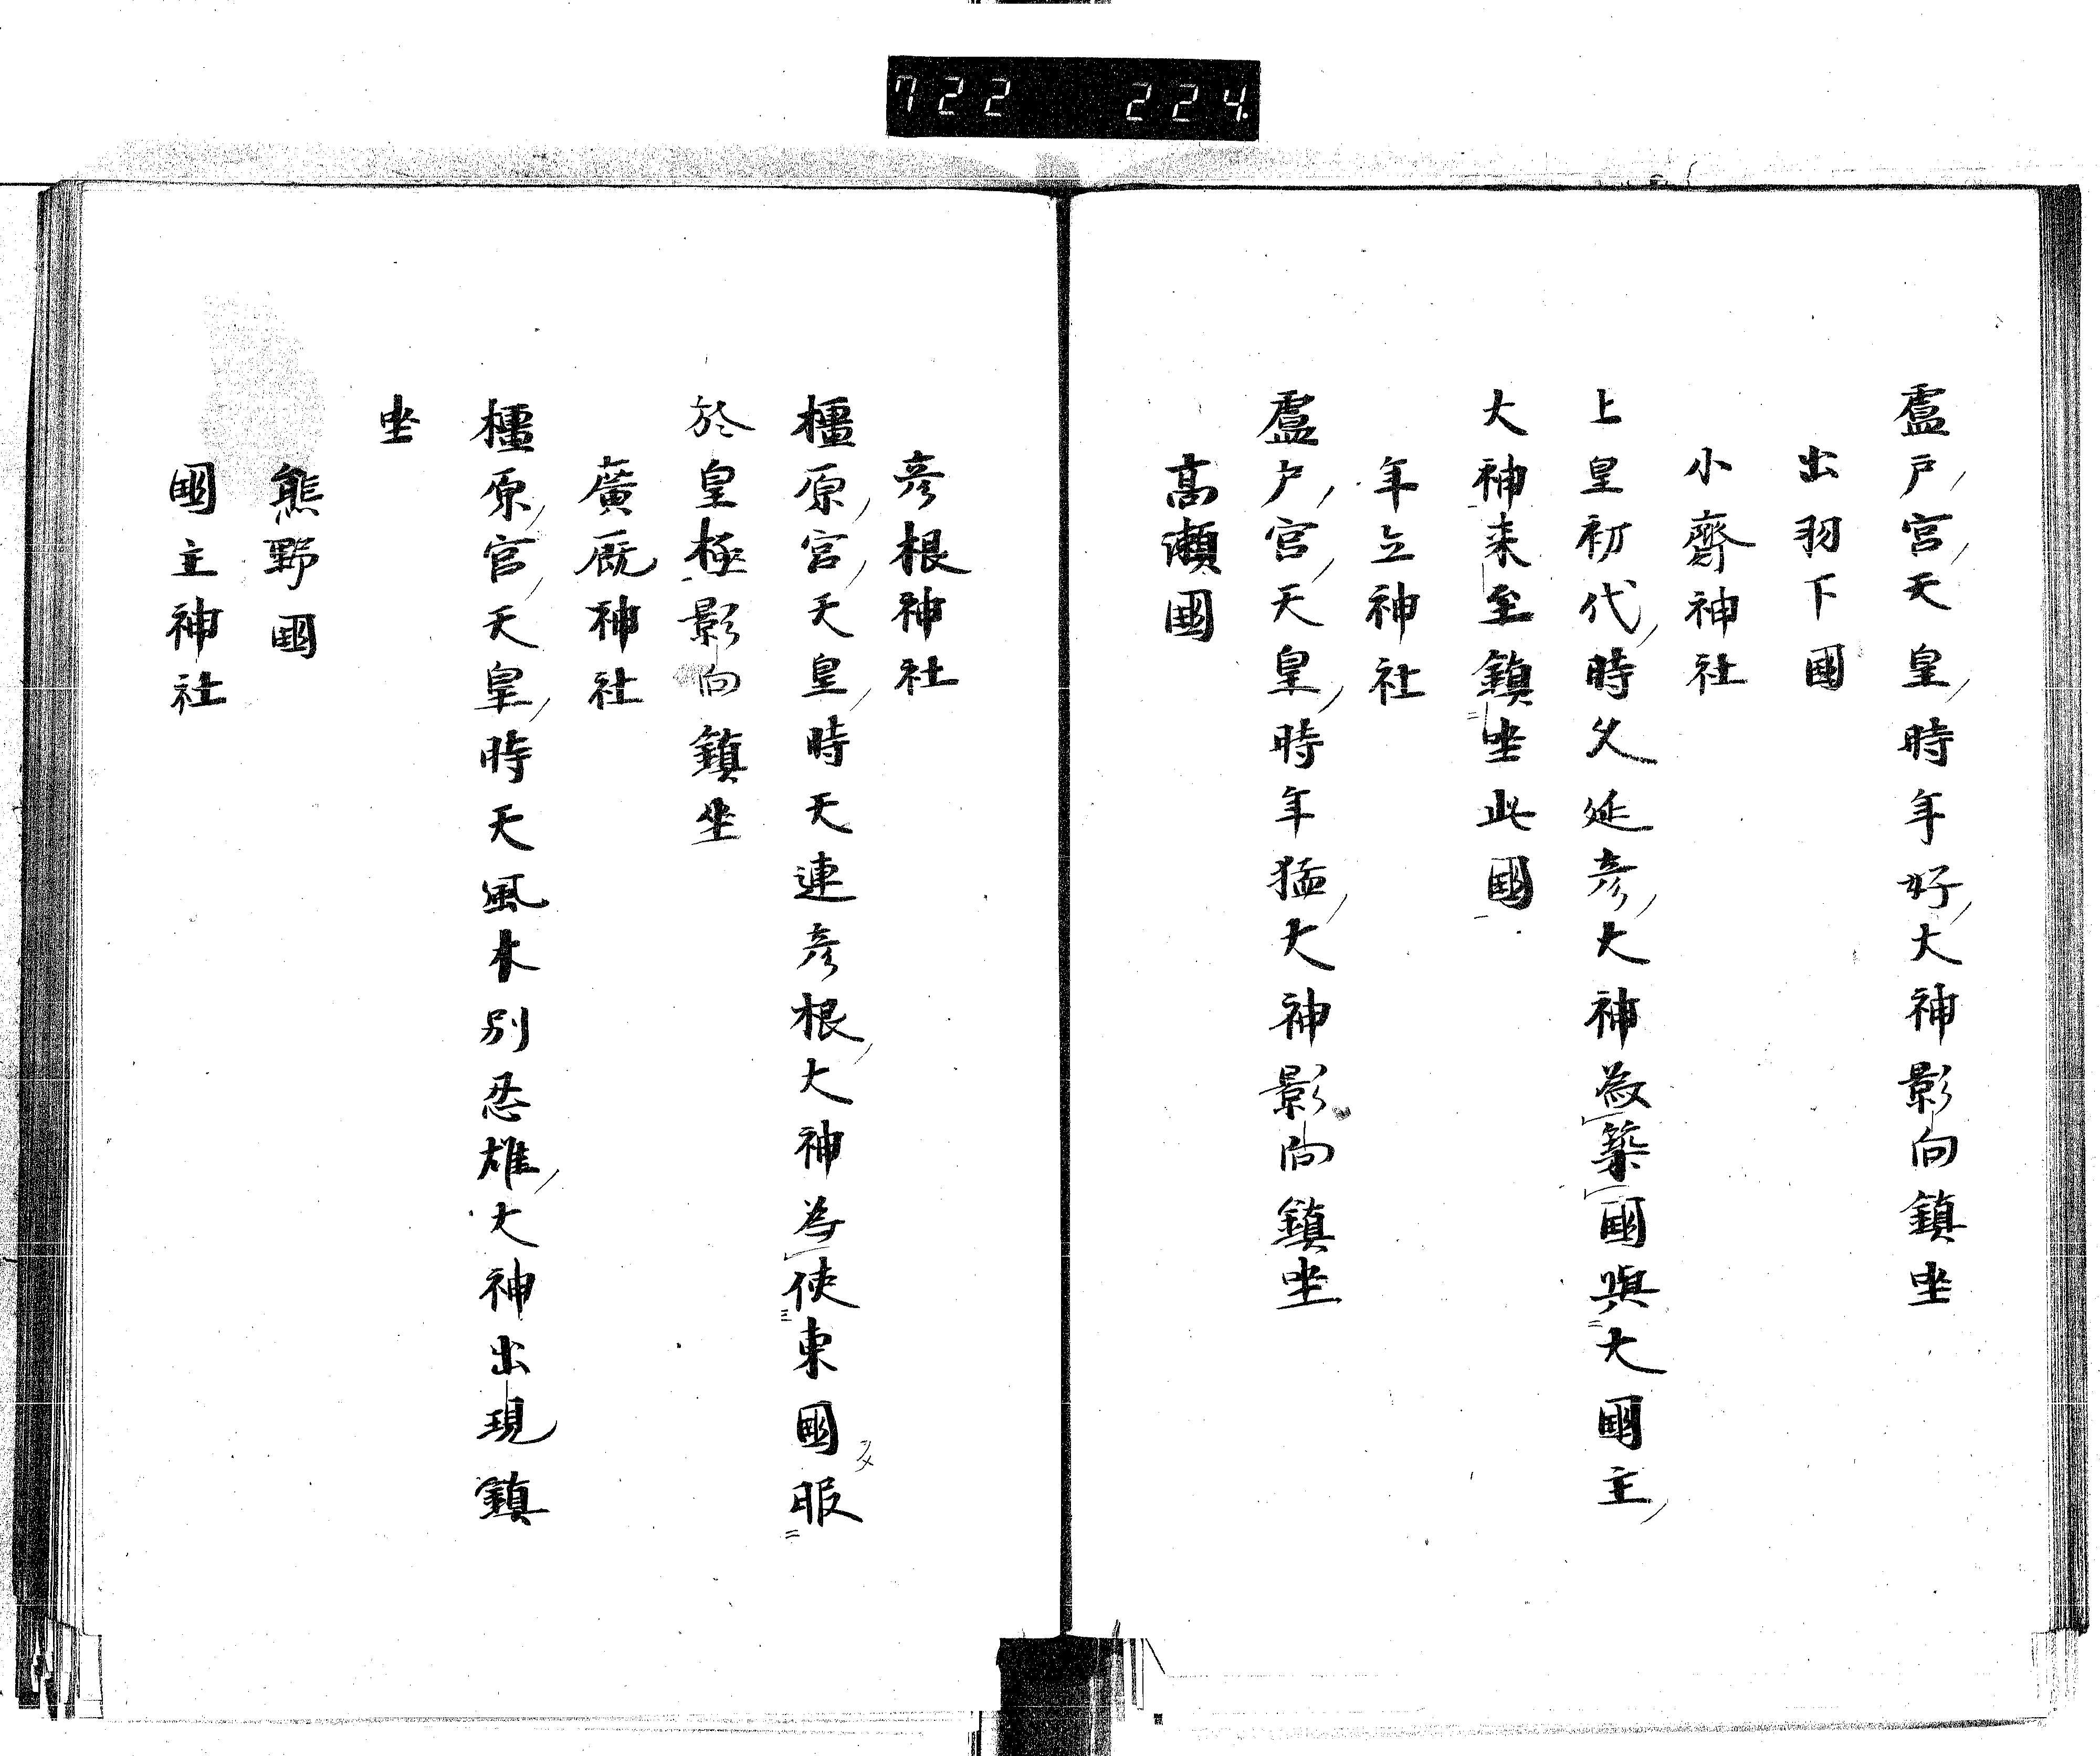 722 224
盧戸ノ宮ノ天皇ノ時年好ノ大神影向鎮坐
出羽下國
小齋神社
上皇初代ノ時久延彦ノ大神為築國與大國主ノ
大神来至鎮坐此國
年立神社
盧戸ノ宮ノ天皇ノ時年猛ノ大神影向鎮坐
高瀬國
彦根神社
橿原ノ宮ノ天皇ノ時天連彦根ノ大神為使東國服
於皇極影向鎮坐
廣厩神社
橿原ノ宮ノ天皇ノ時天風木別忍雄ノ大神出現鎮
坐
熊野國
國主神社